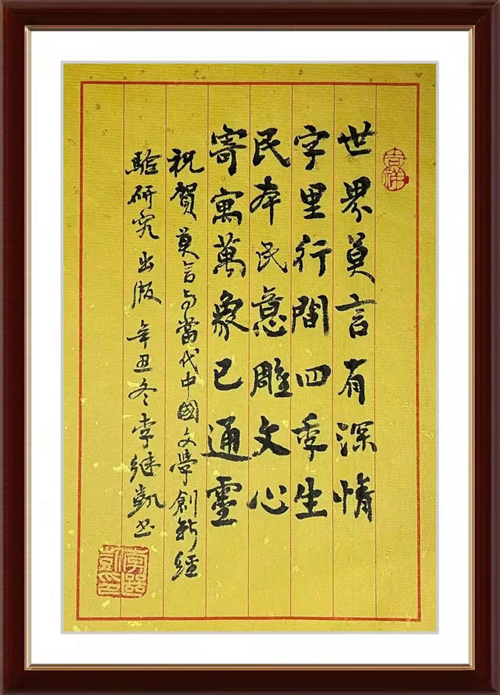 吉祥
世界莫言有深情
字里行間四季生
民本民意雕文心
寄寓萬象已通靈
祝賀莫言与當代中國文學創新經
驗研究出版 辛丑冬李继凯书